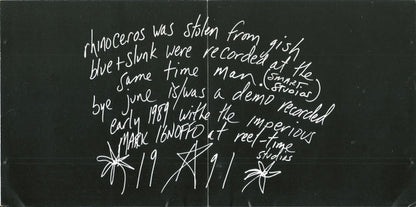 rhinoceros was stolen from gish
blue + slunk were recorded at the
same time man. (SMART STUDIOS)
bye june is/was a demo recorded
early 1989 withe the imperious
MARK IGNOFFO at reel time
studios
19 91